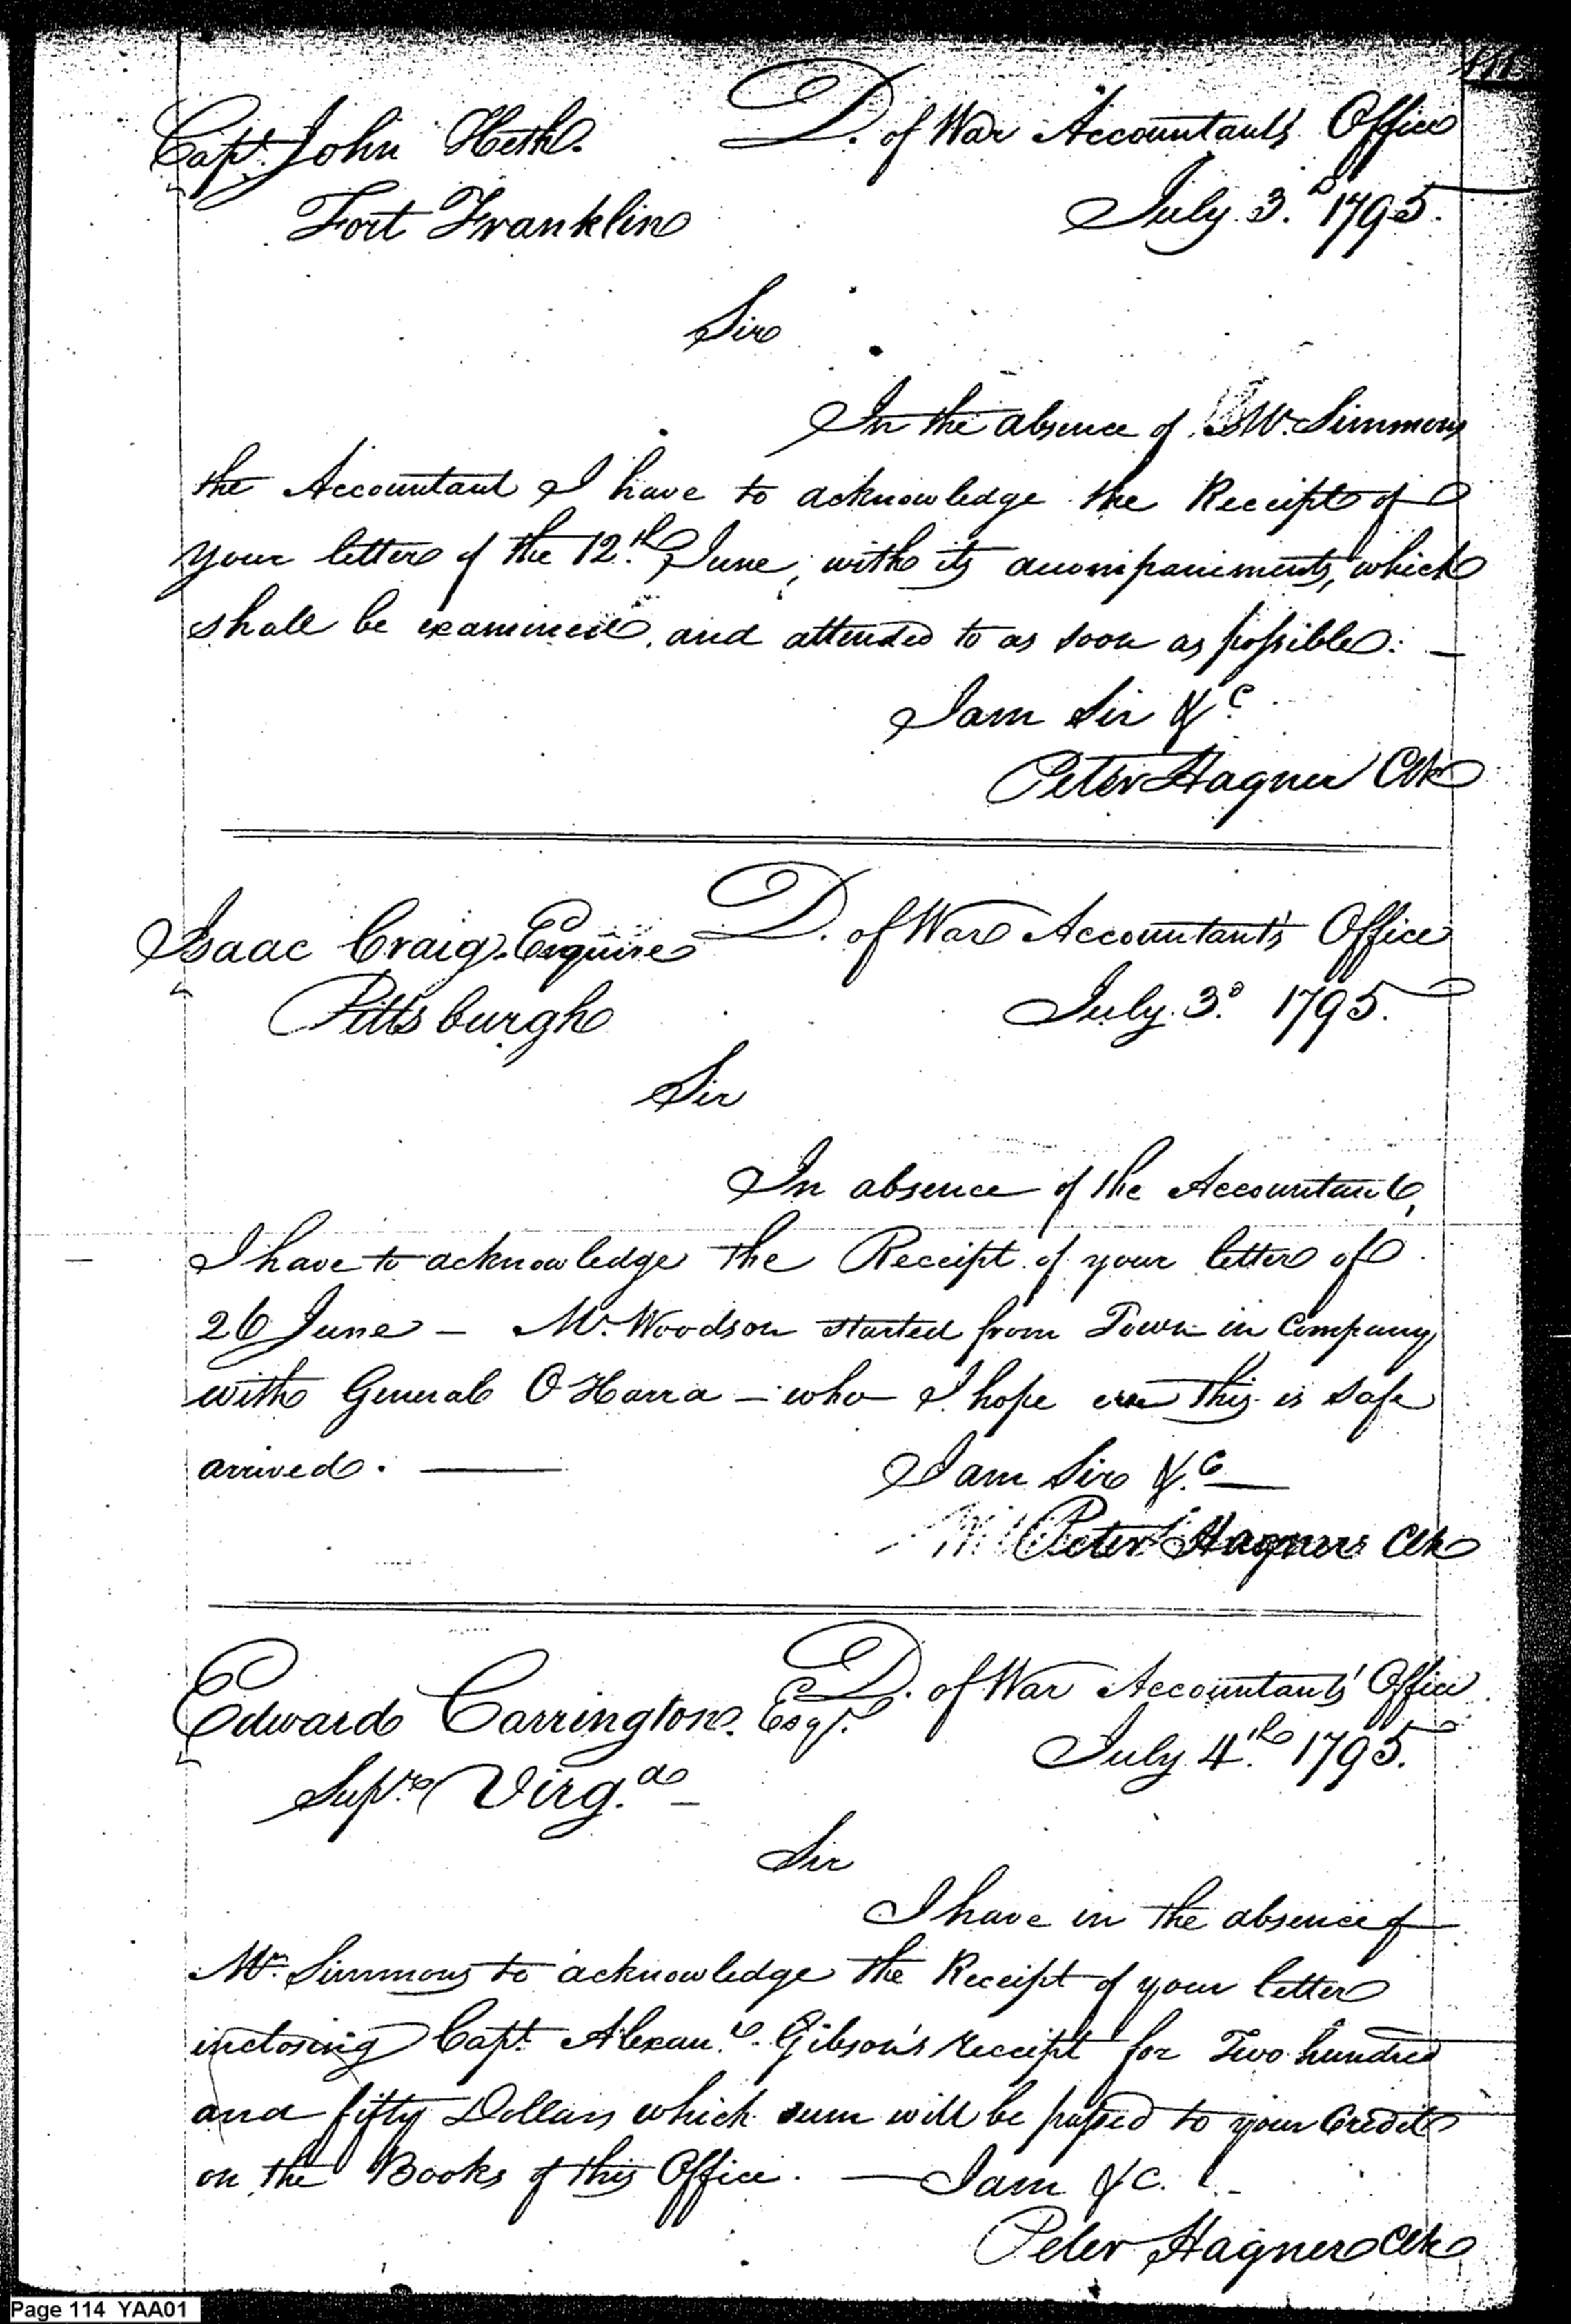 111
Capt. John Heth. D. of War Accountant's Office
Fort Franklin July 3.d 1795.
Sir
In the absence of W. Simmons
the Accountant I have to acknowledge the Receipt of
your letter of the 12.th June, with its accompaniments, which
shall be examined, and attended to as soon as possible. —
I am Sir &c.
Peter Hagner Clk
Isaac Craig Esquire D. of War Accountant's Office
Pittsburgh July 3.d 1795.
Sir
In absence of the Accountant,
I have to acknowledge the Receipt of your letter of
26 June — Mr. Woodson started from Town in Company
with General O Harra — who I hope ere this is safe
arrived. —
I am Sir &.c —
Peter Hagner Clk
Edward Carrington. Esqr. D. of War Accountants' Office
Supr. Virg.a — July 4.th 1795.
Sir
I have in the absence of
Mr. Simmons to acknowledge the Receipt of your letter
inclosing Capt. Alexan.r Gibson's receipt for Two hundred
and fifty Dollars which sum will be passed to your Credit
on the Books of this Office. — I am &c.
Peter Hagner Clk
Page 114 YAA01